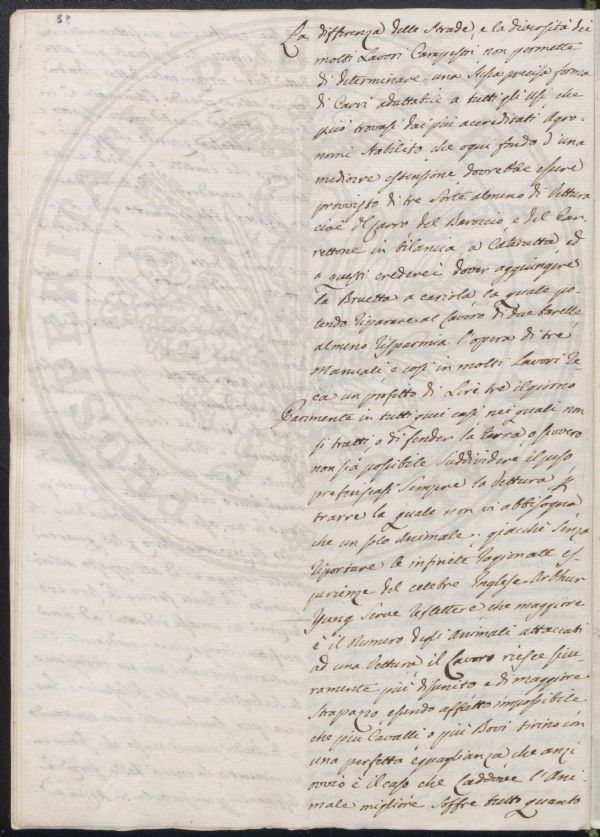 La differenza delle Strade, e la diversità dei
molti Lavori Campestri non permette
di determinare una stessa precisa forma
di Carri adattabile a tutti gli usi, che
può trovasi dai più accreditati Agro-
nomi stabilito che ogni fondo d'una
mediocre estensione dovrebbe essere
provvisto di tre sorte almeno di Vettura
cioè del Carro del Baroccio, e del Car-
rettone in bilancia a Cateratta ed
a questi crederei dover aggiungere
la Bruetta a cariola la quale po-
tendo riparare al Lavoro di due barelle
almeno risparmia l'opera di tre
Manuali, e così in molti Lavori re-
ca un profitto di Lire tre il giorno
Parimente in tutti quei casi nei quali non
si tratti, o di fender la terra, o sivvero
non sia possibile suddividere il peso
preferiscasi sempre la Vettura p
trarre la quale non vi abbisogna
che un solo Animale, giacchè senza
riportare le infinite ragionate es-
perienze del celebre Inglese Arthur
Yung serve reflettere che maggiore
è il Numero degli Animali attaccati
ad una Vettura il Lavoro riesce sicu-
ramente più disunito e di maggiore
strapazzo essendo affatto impossibile
che più Cavalli o più Bovi tirino con
una perfetta eguaglianza che anzi
ovvio è il caso che laddove l'Ani-
male migliore soffre tutto quanto
PROSPERITATI